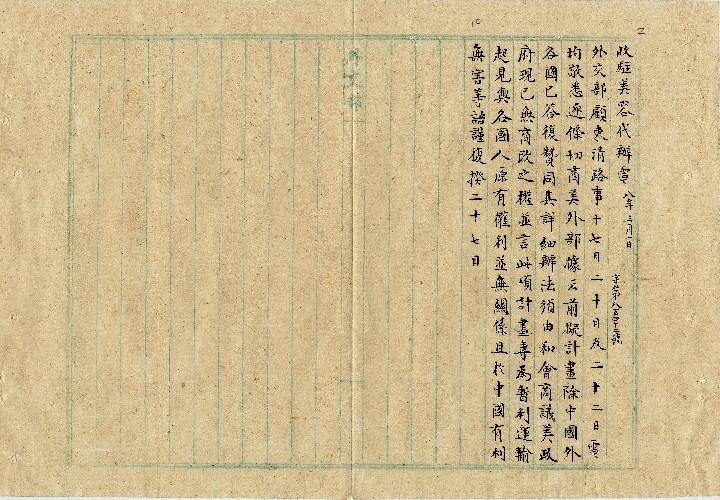 收駐美容代辦電 八年三月一日
外交部顧東清路事十七日二十日及二十二日電
均敬悉逐條切商美外部據云前擬計畫除中國外
各國已答復贊同其詳細辦法須由和會商議美政
府現已無商改之權並言此項計畫專為暫利運輸
起見與各國人原有權利並無關係且於中國有利
無害等語謹復揆二十七日